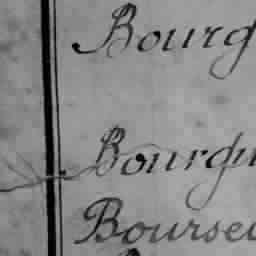 Bourg
Bourgu
Bourseu